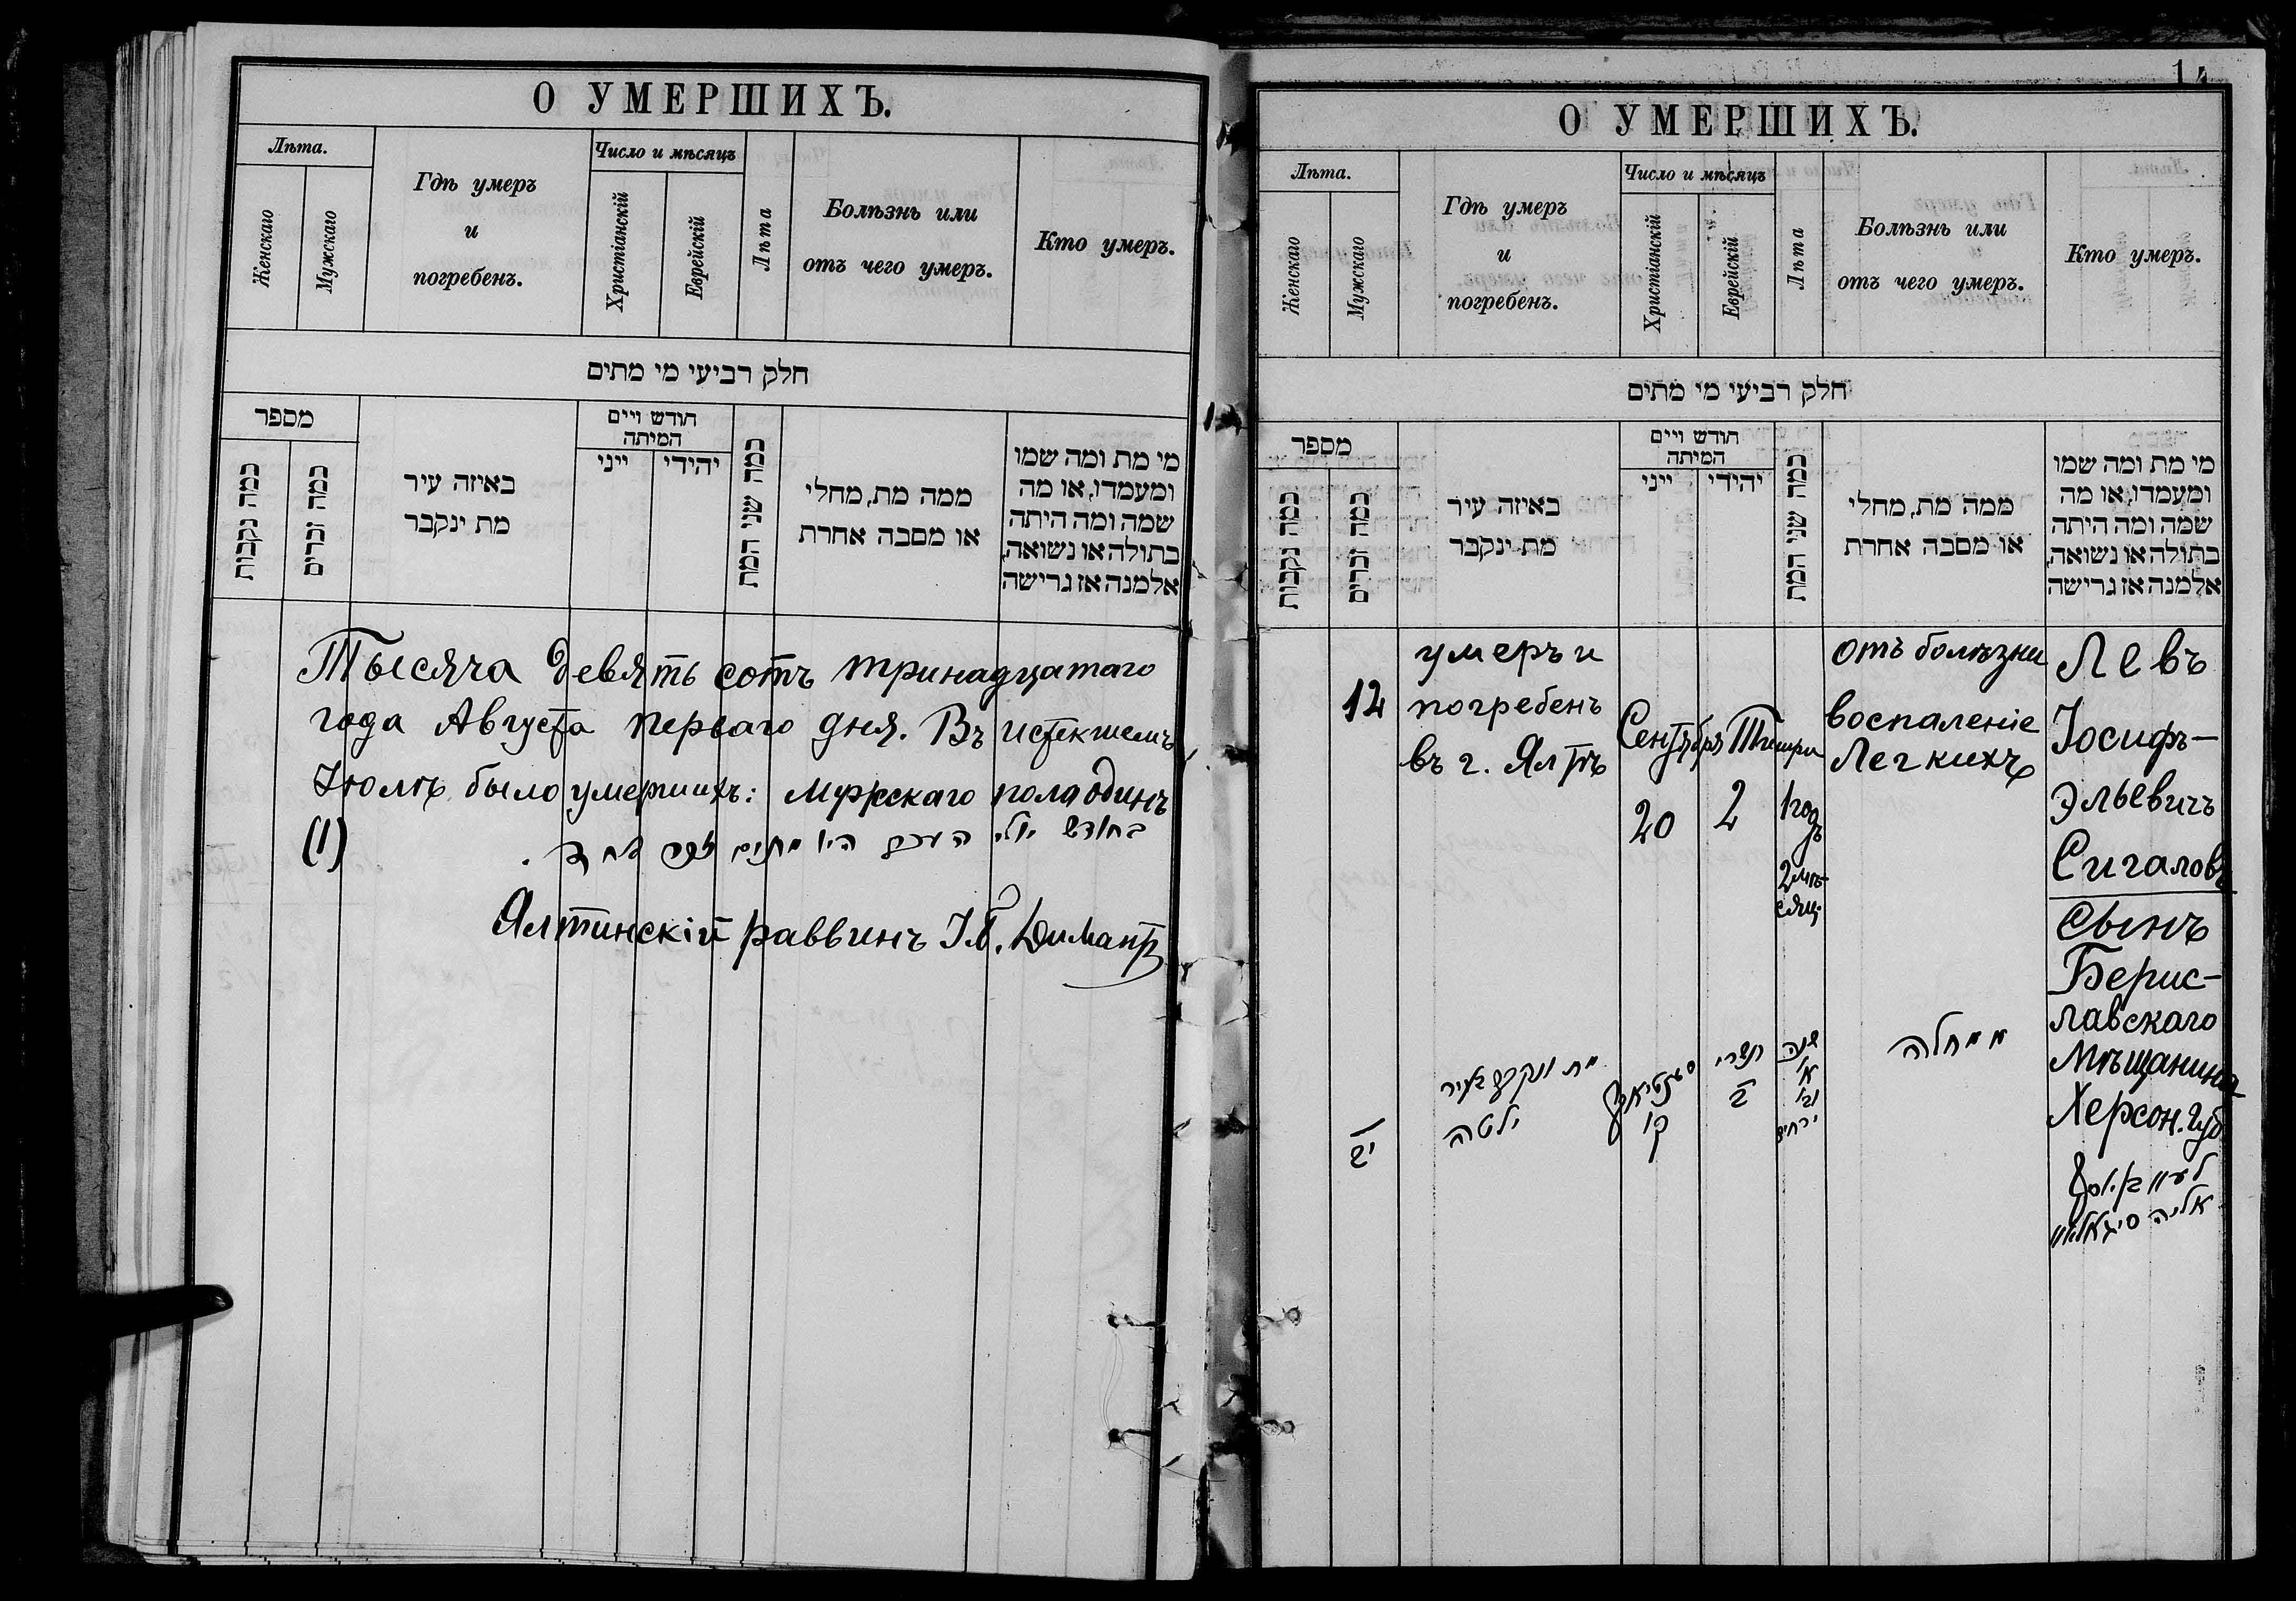 О УМЕРШИХЪ.
Лѣта.
Женскаго
Мужскаго
Гдѣ умеръ
и
погребенъ.
Число и мѣсяцъ
Христіанскій
Еврейскій
Лѣта
Болѣзнь или
отъ чего умеръ.
Кто умеръ.
חלק רביעי מי מתים
מספר
כמה נקבות
כמה זכרים
באיזה עיר
מת ינקבר
חודש ויים
המיתה
ייני
יהידי
כמה שני המת
ממה מת, מחלי
או מסבה אחרת
מי מת ומה שמו
ומעמדו, או מה
שמה ומה היתה
בתולה או נשואה,
אלמנה אז גרישה
Тысяча девять сотъ тринадцатаго
года Августа перваго дня. Въ истекшемъ
Іюлѣ было умершихъ: мужскаго пола одинъ
(1)
בחודש יולי העבר היו מתים זכר אחד.
Ялтинскій раввинъ
14
О УМЕРШИХЪ.
Лѣта.
Женскаго
Мужскаго
Гдѣ умеръ
и
погребенъ.
Число и мѣсяцъ
Христіанскій
Еврейскій
Лѣта
Болѣзнь или
отъ чего умеръ.
Кто умеръ.
חלק רביעי מי מתים
מספר
כמה נקבות
כמה זכרים
באיזה עיר
מת ינקבר
חודש ויים
המיתה
ייני
יהידי
כמה שני המת
ממה מת, מחלי
או מסבה אחרת
מי מת ומה שמו
ומעמדו, או מה
שמה ומה היתה
בתולה או נשואה,
אלמנה אז גרישה
12
умеръ и
погребенъ
въ г. Ялтѣ
Сентября
20
Тишри
2
1 годъ
2 мѣ-
сяц.
отъ болѣзни
воспаленіе
Легкихъ
Левъ
Іосифъ-
Эльевичъ
Сигаловъ
сынъ
Берис-
лавскаго
Мѣщанина
Херсон. губ
יב
מת ונקבר בעיר
ילטה
תשרי
ב
שנה
א'
וב'
ירחים
ממחלה